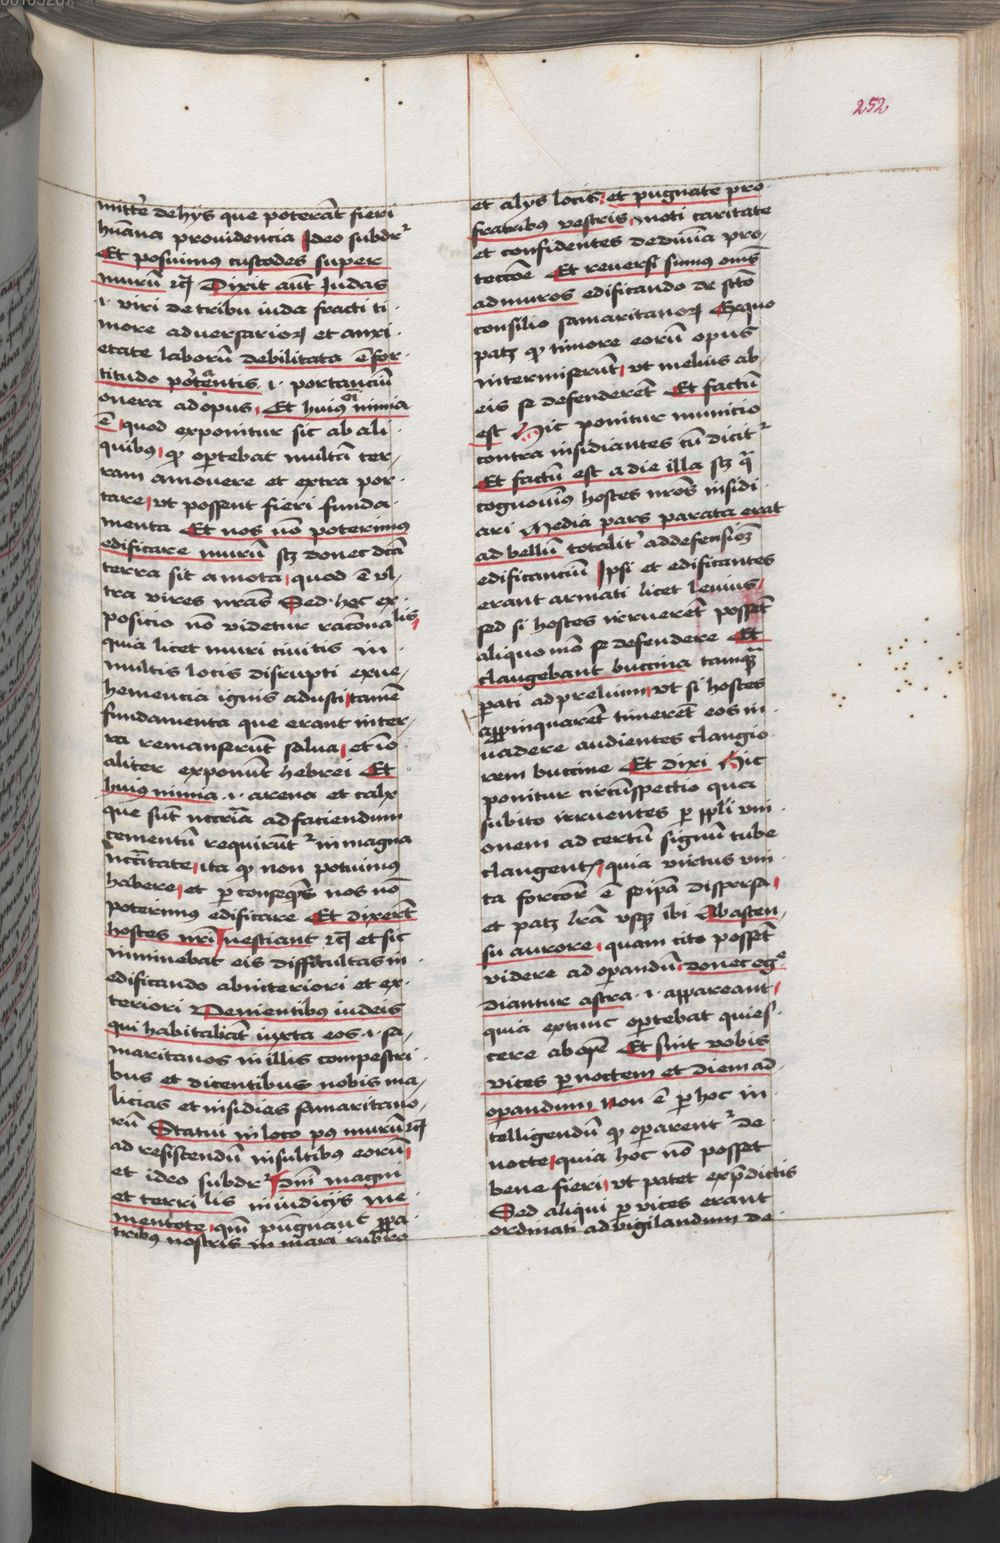 252
mittẽ de hijs que poterãt fieri
hũana prouidencia Ideo subdr̃
Et posuimus custodes super
murũ ⁊c̃ Dixit aũt Judas
.i. viri de tribu iuda fracti ti
more aduersarioꝝ et anxi
etate laborũ debilitata ẽ for
titudo portantis .i. portanciũ
onera ad opus, Et humus nimia
ẽ quod exponitur sic ab ali
quibus, ꝙ oportebat multã ter
ram amouere et extra por
tare, vt possent fieri funda
menta Et nos nõ poterimus
edificare murũ scꝫ donec dcã
terra sit amota, quod ẽ vl
tra vires nrãs Sed hec ex
posicio nõ videtur racõnalis,
quia licet muri ciuitis in
multis locis disrupti ex ve
hemencia ignis adusti, tamẽ
fundamenta que erant in ter
ra remanserũt salua, et iõ
aliter exponũt hebrei Et
humus nimia .i. arena et calx
que sũt nccãria ad faciendum
cementũ requirũtr̃ in magna
nccãitate, ita ꝙ non potuimus
habere, et ꝑ conseqñs nos nõ
poterimus edificare Et dixerẽt
hostes nr̃i nesciant ⁊c̃ et sic
iminebat eis difficultas in
edificando ab interiori et ex
teriori Venientibus iudeis
qui habitabãt iuxta eos .i. sa
maritanos in illis campestri
bus et dicentibus nobis ma
licias et insidias samaritano
rũ Statui in loco pꝰ murũ ⁊c̃
ad resistendũ insultibus eorũ,
et ideo subdr̃ Dñi magni
et terribilis in iudicijs me
mentote, qui pugnauit ꝓ pa
tribus nostris in mari rubro
et alijs locis, et pugnate pro
fratribus vestris, moti caritate
et confidentes de diuĩa pro
teccõe Et reuersi sumus oms̃
ad muros edificando de sctõ
consilio samaritanoꝝ Ex quo
patꝫ ꝙ timore eorũ opus
intermiserũt, vt melius ab
eis se defenderẽt Et factũ
est Hic ponitur municio
contra insidiantes cũ dicitr̃
Et factũ est a die illa scꝫ q̃
cognouimꝰ hostes nrõs insidi
ari Media pars parata erat
ad bellũ totalitẽ ad defensionẽ
edificanciũ Ipsi et edificantes
erant armati licet leuius,
sed si hostes irruerẽt possẽt
aliquo mõ se defendere Et
clangebant buccina tamqꝫ
pati ad prelium, vt si hostes
appinquarẽt timerẽt eos in
uadere audientes clangio
rem buccine Et dixi Hic
ponitur circũspectio qua
subito irruentes ꝑ ppl̃i vni
onem ad certũ signũ tube
clangentꝭ, quia virtus vni
ta forcior ẽ seipã dispersa,
et patꝫ lrã vsqꝫ ibi Ab ascen
su aurore, quam cito possẽt
videre ad operandũ, donec egre
diantur astra .i. appareant,
quia extunc oportebat quies
cere ab opẽ Et sint vobis
vices ꝑ noctem et diem ad
operandum non ẽ ꝑ hoc in
telligendũ ꝙ operarentr̃ de
nocte, quia hoc nõ posset
bene fieri, vt patet ex p̃dictis
Sed aliqui ꝑ vices erant
ordinati ad vigilandum de